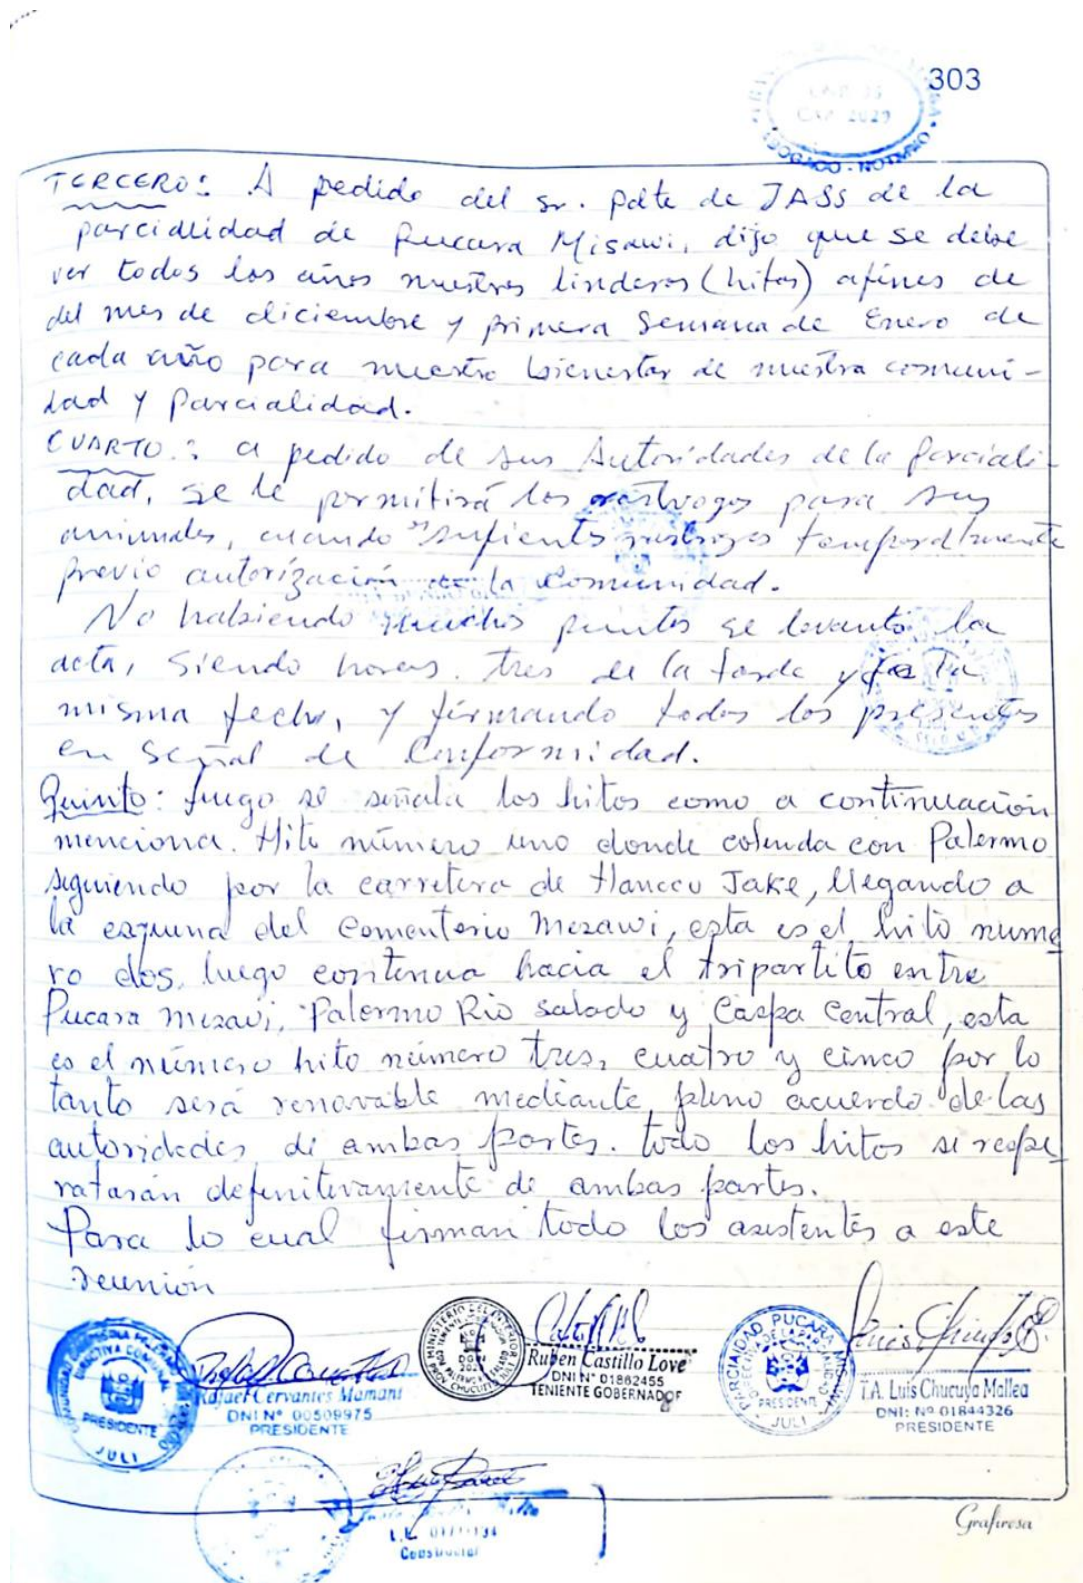 303
CAP 2029
ABOGADO - NOTARIO
TERCERO: A pedido del sr. Pdte de JASS de la
parcialidad de Pucara Misawi, dijo que se debe
ver todos los años nuestros linderos (hitos) afines de
del mes de diciembre y primera Semana de Enero de
cada año para nuestro bienestar de nuestra comuni-
dad y Parcialidad.
CUARTO.: a pedido de sus Autoridades de la Parciali-
dad, se le permitirá los rastrogos para sus
animales, cuando "sufiente rastrogos temporalmente
previo autorización de la Comunidad.
No habiendo muchos puntos se levantó la
acta, siendo horas tres de la tarde y
misma fecha, y firmando todos los presentes
en señal de Conformidad.
Quinto: luego se señala los hitos como a continuación
menciona. Hito número uno donde colinda con Palermo
siguiendo por la carretera de Hanccu Jake, llegando a
la esquina del Cementerio Mesawi, esta es el hito nume
ro dos, luego continua hacia el tripartito entre
Pucara Misawi, Palermo Rio Salado y Caspa Central, esta
es el número hito número tres, cuatro y cinco por lo
tanto será renovable mediante pleno acuerdo de las
autoridades de ambas partes. todo los hitos se respe
ratarán definitivamente de ambas partes.
Para lo cual firman todo los asistentes a este
reunión
DIRECTIVA COMUNAL
PRESIDENTE
JULI
Rafael Cervantes Mamani
DNI Nº 00509975
PRESIDENTE
MINISTERIO DEL INTERIOR
CHUCUITO
Ruben Castillo Love
DNI Nº 01862455
TENIENTE GOBERNADOR
PARCIALIDAD PUCARA
PRESIDENTE
JULI
T.A. Luis Chucuya Mallea
DNI: Nº 01844326
PRESIDENTE
Grafiresa